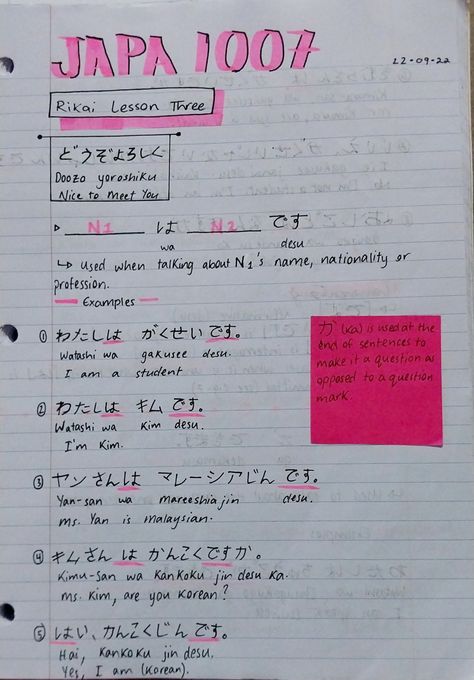 JAPA 1007
22-09-22
Rikai Lesson Three
どうぞよろしく
Doozo yoroshiku
Nice to meet You
N1 は N2 です
wa desu
↳ used when talking about N1's name, nationality or
profession.
Examples
① わたしは がくせいです。
Watashi wa gakusee desu.
I am a student
② わたしは キム です。
Watashi wa Kim desu.
I'm Kim.
か (ka) is used at the
end of sentences to
make it a question as
opposed to a question
mark.
③ ヤンさんは マレーシアじん です。
Yan-san wa mareeshia jin desu.
ms. Yan is malaysian.
④ キムさん は かんこくですか。
Kimu-San wa Kankoku jin desu ka.
ms. Kim, are you Korean?
⑤ はい、かんこくじん です。
Hai, Kankoku jin desu.
Yes, I am (Korean).